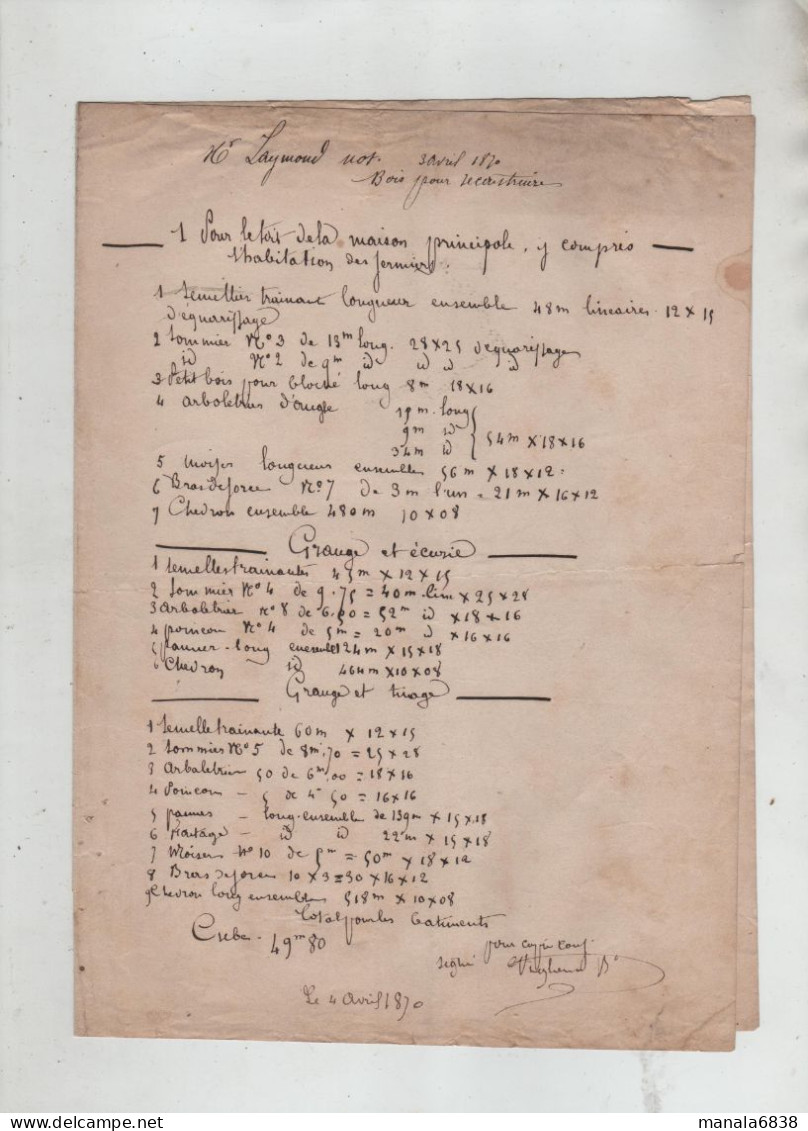 Mr Laymond not. 3 avril 1870
Bois pour recostruire
1 Pour le toit de la maison principole, y compris
l'habitation des fermiers.
1 Semettier trainant longueur ensemble 48m lineaires. 12 x 15
d'équarissage
2 Sommier No 3 de 13m long. 28 x 25 d'équarissage
id No 2 de 9m id id id id
3 Petit bois pour bloché long 8m 18 x 16
4 arboletries d'
m. long
9m id 54m x 18 x 16
34m id
5 moises longueur ensembles 56m x 18 x 12
6 Bras de force No 7 de 3m l'un = 21m x 16 x 12
7 Chevron ensemble 480m 10 x 08
Grange et écurie
1 Semelles trainantes 45m x 12 x 15
2 Sommier No 4 de 9.75 = 40m. lim x 25 x 28
3 Arboletrier No 8 de 6.50 = 52m id x 18 x 16
4 poincon No 4 de 5m = 20m id x 16 x 16
5 pannier - long ensemble 124m x 15 x 18
6 Chevron id 464m x 10 x 08
Grange et
1 Semelle trainante 60m x 12 x 15
2 Sommier No 5 de 8m.70 = 25 x 28
3 Arbaletrier 50 de 6m.00 = 18 x 16
4 Poincon - 5 de 4m 50 = 16 x 16
5 pannes - long. ensemble de 139m x 15 x 18
6 - id id 22m x 15 x 18
7 Moises No 10 de 5m = 50m x 18 x 12
8 Bras de force 10 x 3 = 30 x 16 x 12
9 Chevron long ensembles 518m x 10 x 08
Total pour les batiments
Cube - 49m 80
pour copie conf.
signé
Le 4 Avril 1870
manala6838